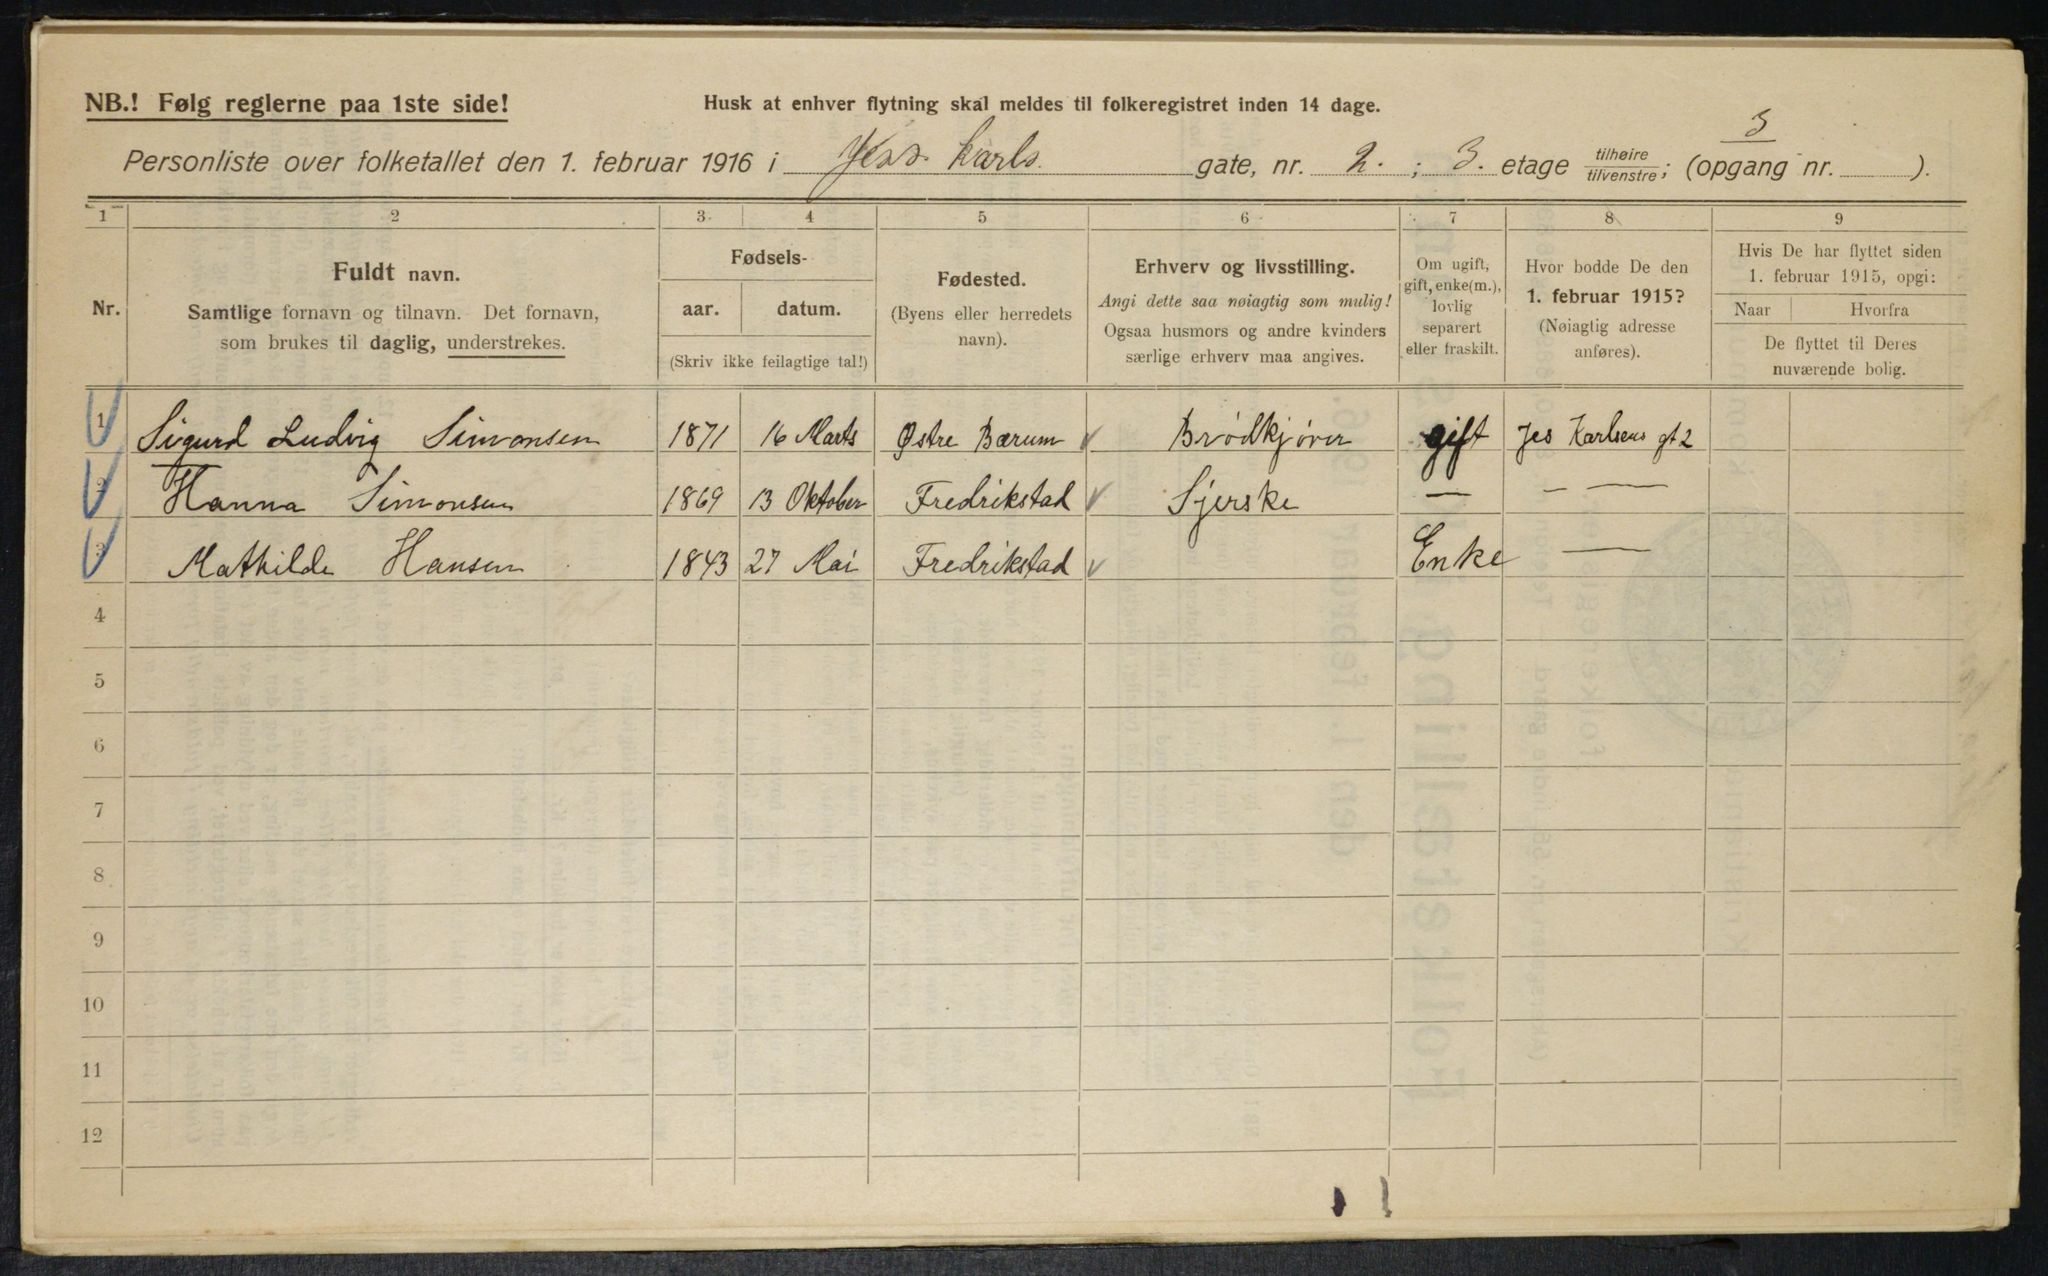 NB.! Følg reglerne paa 1ste side!
Husk at enhver flytning skal meldes til folkeregistret inden 14 dage.
3
Personliste over folketallet den 1. februar 1916 i Jess Karls. gate, nr. 2. ; 3. etage tilhøire/tilvenstre; (opgang nr. ).
1 2 3 4 5 6 7 8 9
Nr.
Fuldt navn.
Samtlige fornavn og tilnavn. Det fornavn,
som brukes til daglig, understrekes.
Fødsels-
aar. datum.
(Skriv ikke feilagtige tal!)
Fødested.
(Byens eller herredets
navn).
Erhverv og livsstilling.
Angi dette saa nøiagtig som mulig!
Ogsaa husmors og andre kvinders
særlige erhverv maa angives.
Om ugift,
gift, enke(m.),
lovlig
separert
eller fraskilt.
Hvor bodde De den
1. februar 1915?
(Nøiagtig adresse
anføres).
Hvis De har flyttet siden
1. februar 1915, opgi:
Naar Hvorfra
De flyttet til Deres
nuværende bolig.
1 Sigurd Ludvig Simonsen 1871 16 Marts Østre Bærum Brödkjører gift Jes Karlsens gt 2
2 Hanna Simonsen 1869 13 Oktober Fredrikstad Sjerske — - —
3 Mathilde Hansen 1843 27 Mai Fredrikstad Enke —
4
5
6
7
8
9
10
11
12